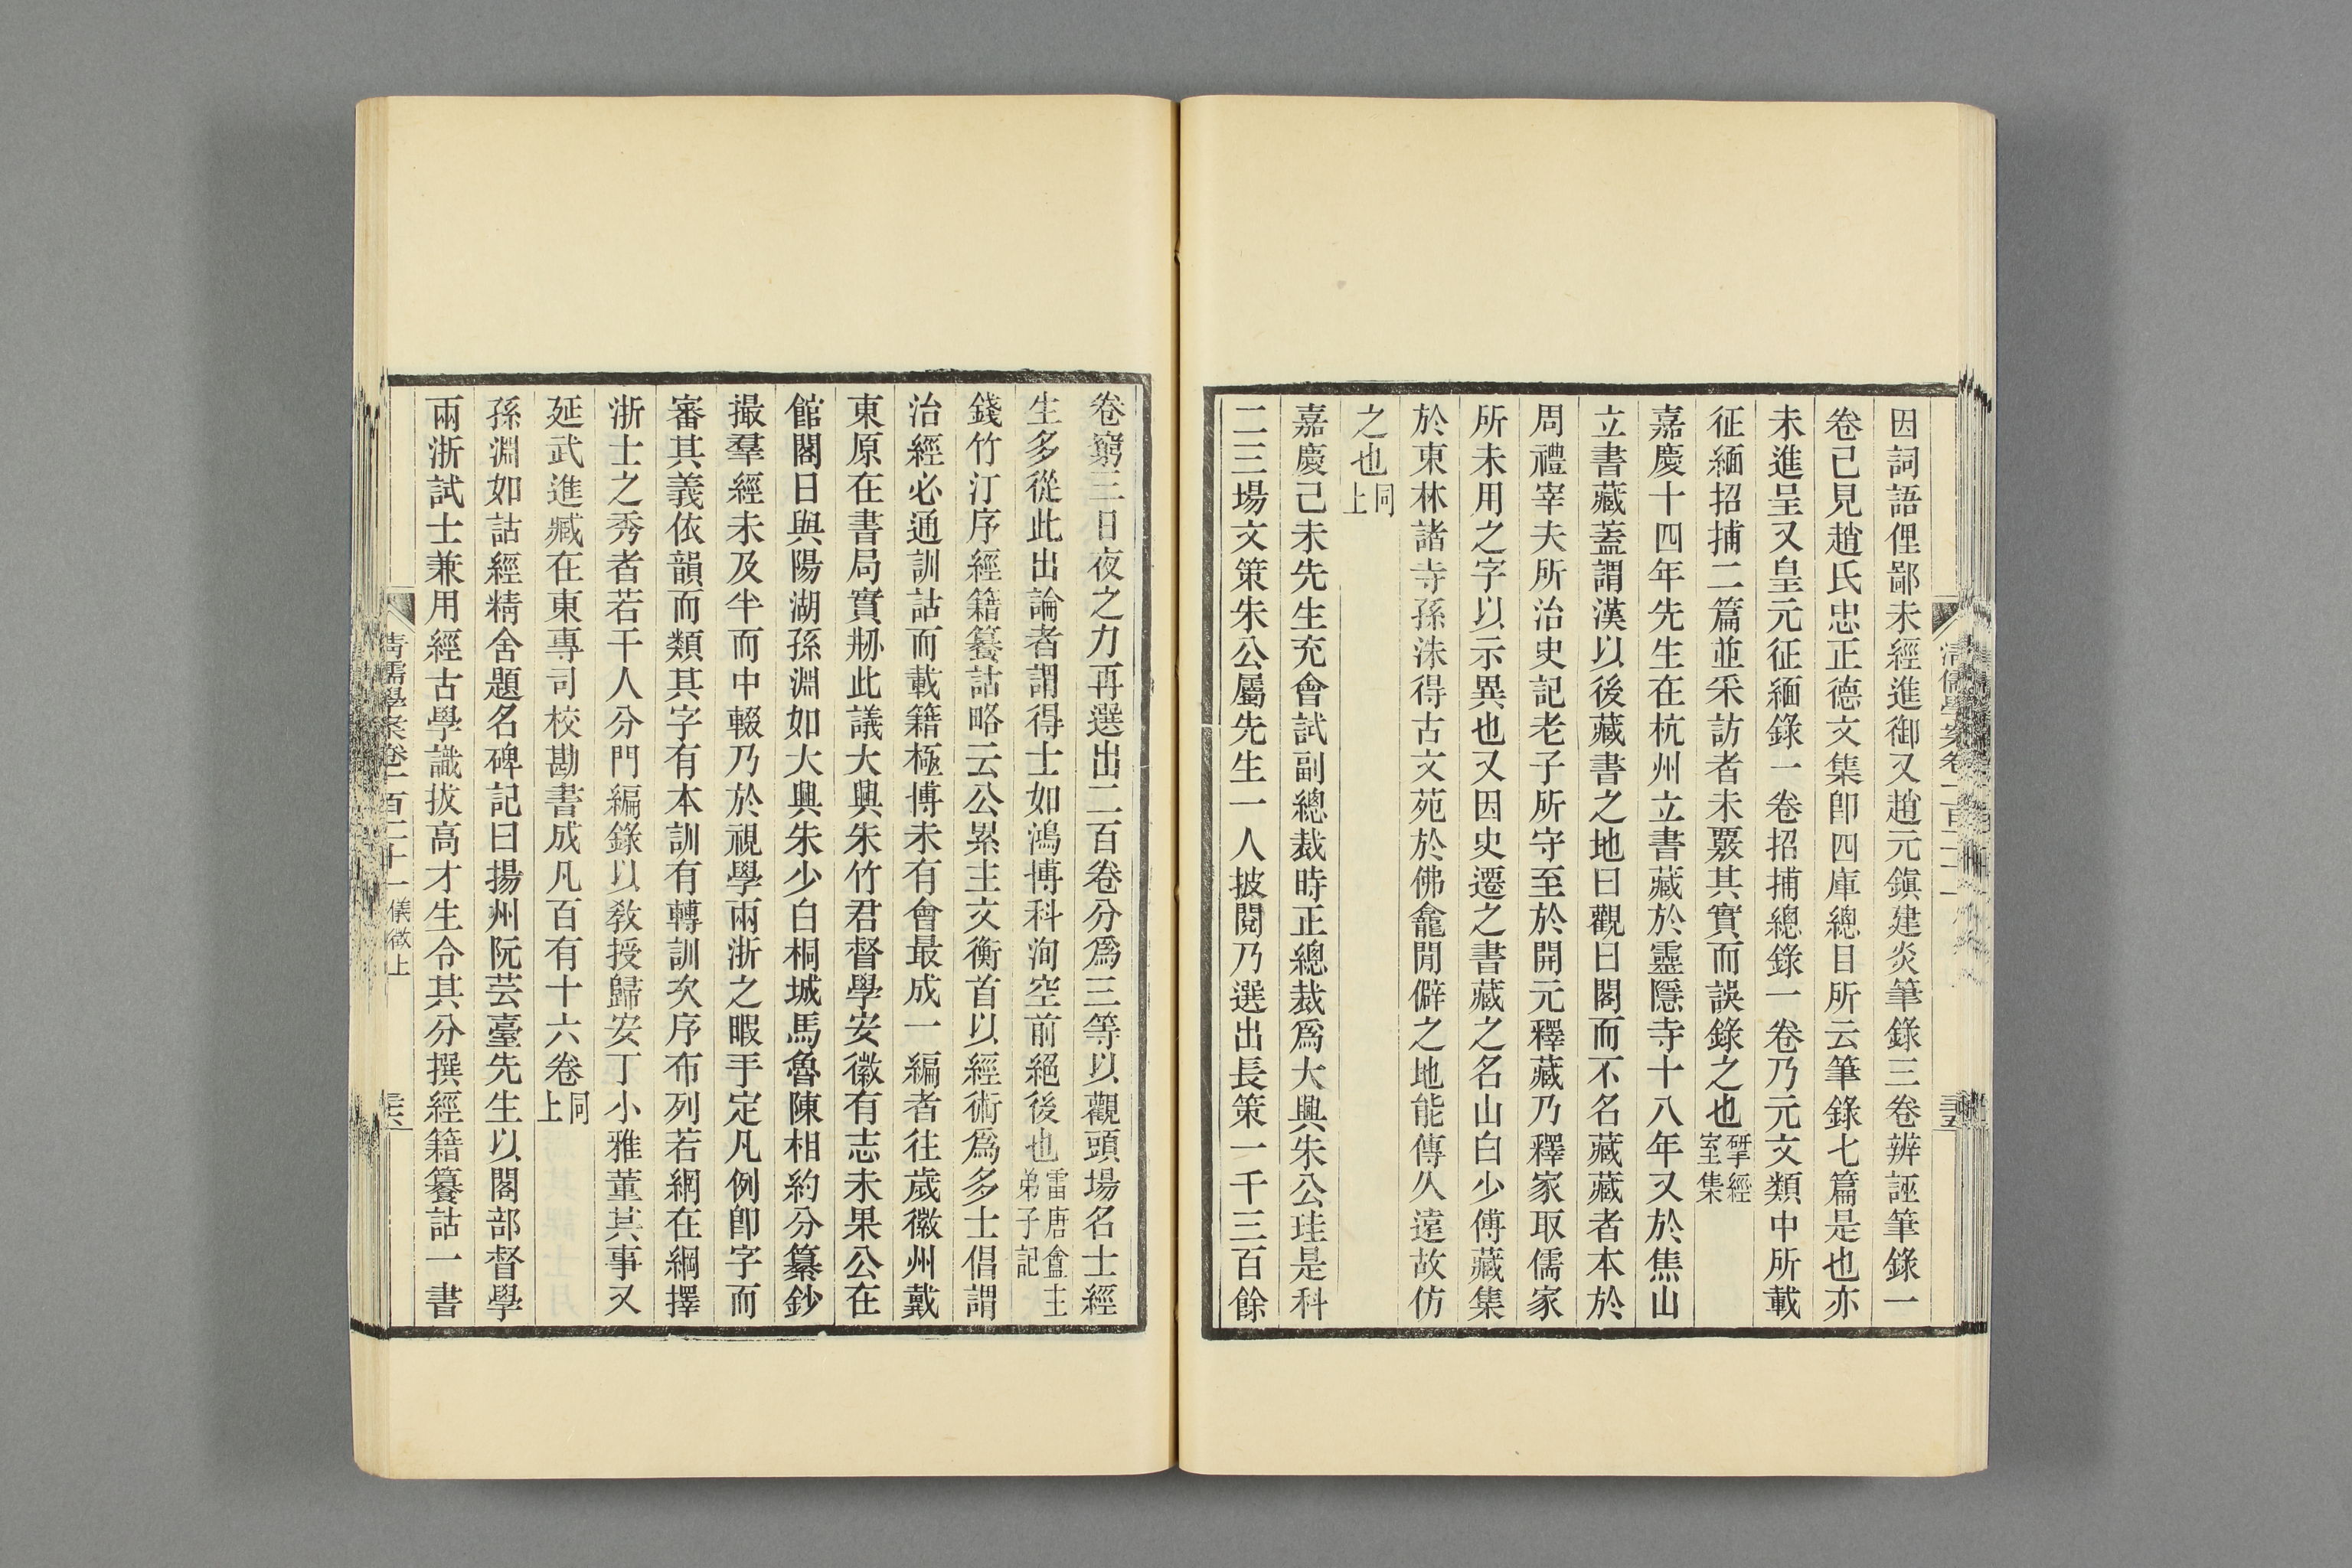 因詞語俚鄙未經進御又趙元鎭建炎筆錄三卷辨誣筆錄一
卷已見趙氏忠正德文集卽四庫總目所云筆錄七篇是也亦
未進呈又皇元征緬錄一卷招捕總錄一卷乃元文類中所載
征緬招捕二篇並采訪者未覈其實而誤錄之也揅經室集
嘉慶十四年先生在杭州立書藏於靈隱寺十八年又於焦山
立書藏蓋謂漢以後藏書之地曰觀曰閣而不名藏藏者本於
周禮宰夫所治史記老子所守至於開元釋藏乃釋家取儒家
所未用之字以示異也又因史遷之書藏之名山白少傅藏集
於東林諸寺孫洙得古文苑於佛龕閒僻之地能傳久遠故仿
之也同上
嘉慶己未先生充會試副總裁時正總裁爲大興朱公珪是科
二三場文策朱公屬先生一人披閱乃選出長策一千三百餘
卷窮三日夜之力再選出二百卷分爲三等以觀頭場名士經
生多從此出論者謂得士如鴻博科洵空前絕後也雷唐盦主弟子記
錢竹汀序經籍籑詁略云公累主文衡首以經術爲多士倡謂
治經必通訓詁而載籍極博未有會最成一編者往歲徽州戴
東原在書局實刱此議大興朱竹君督學安徽有志未果公在
館閣日與陽湖孫淵如大興朱少白桐城馬魯陳相約分纂鈔
撮羣經未及半而中輟乃於視學兩浙之暇手定凡例卽字而
審其義依韻而類其字有本訓有轉訓次序布列若網在綱擇
浙士之秀者若干人分門編錄以敎授歸安丁小雅董其事又
延武進臧在東專司校勘書成凡百有十六卷同上
孫淵如詁經精舍題名碑記曰揚州阮芸臺先生以閣部督學
兩浙試士兼用經古學識拔高才生令其分撰經籍籑詁一書
清儒學案卷一百二十一 儀徵上